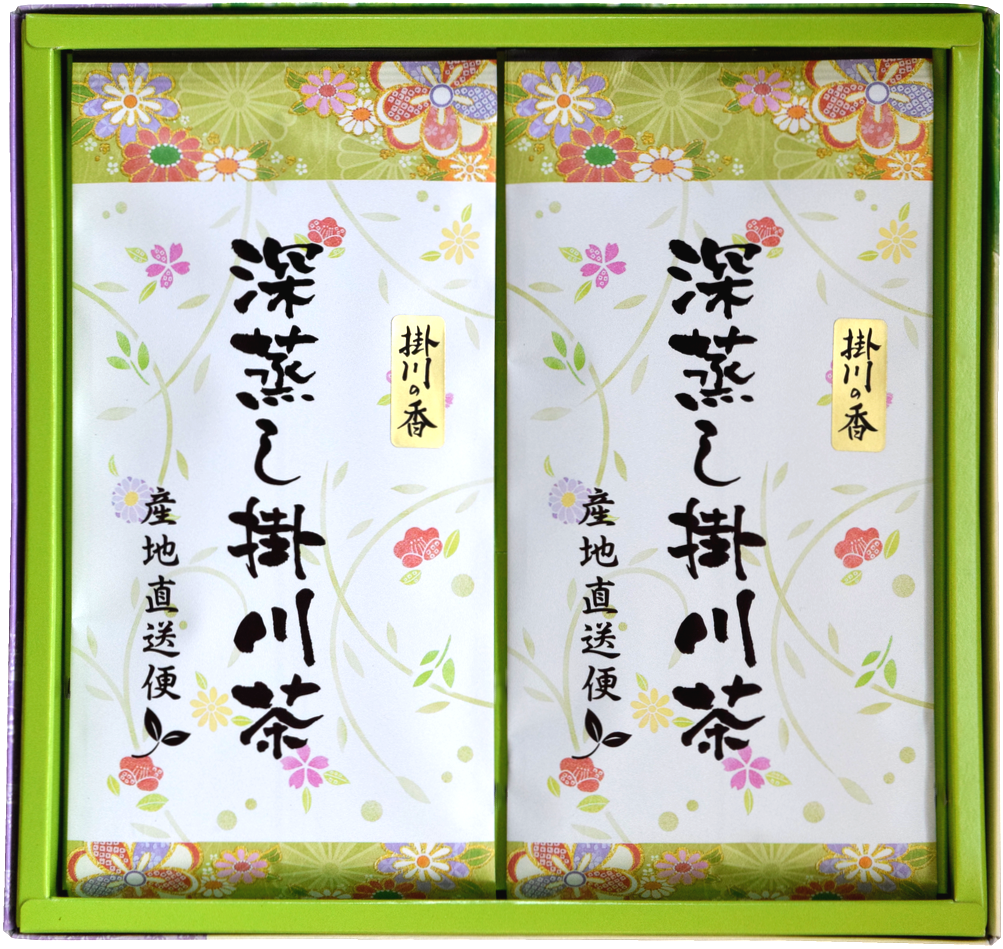 掛川の香
深蒸し掛川茶
産地直送便
掛川の香
深蒸し掛川茶
産地直送便